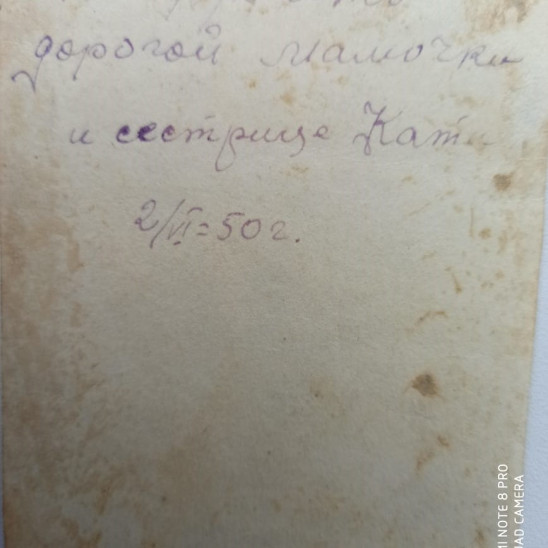 дорогой мамочки
и сестрице Кати
2/VI=50г.
MI NOTE 8 PRO
UAD CAMERA